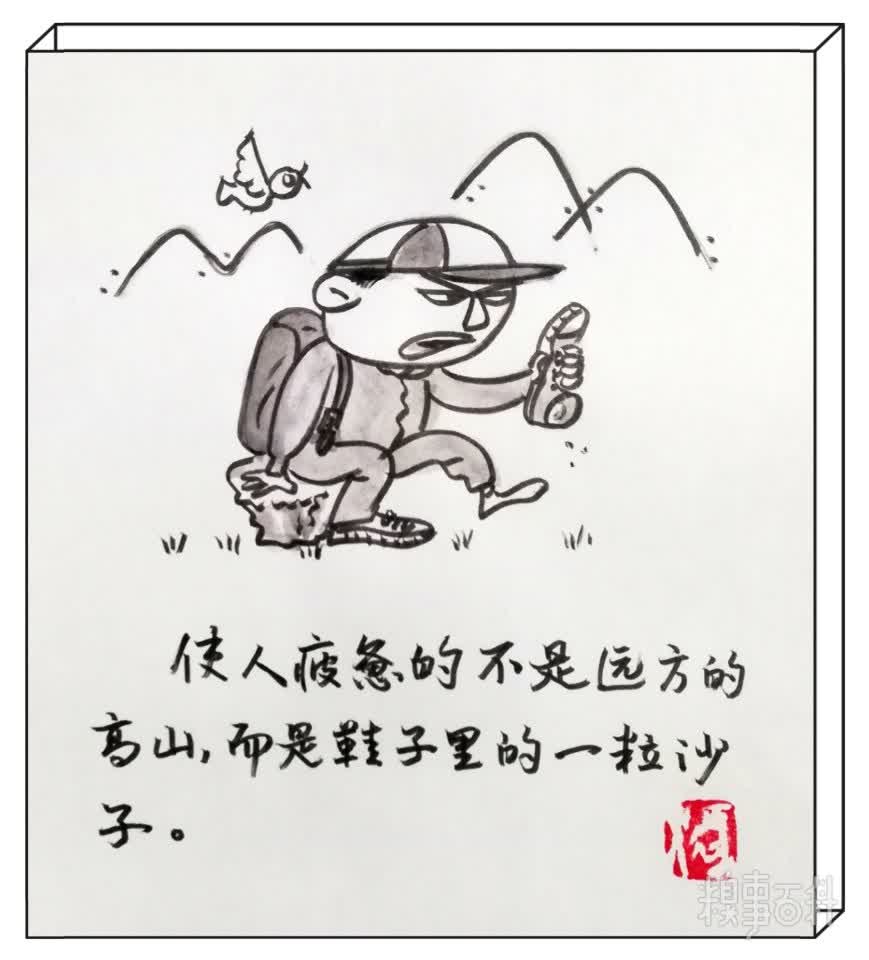 使人疲惫的不是远方的
高山，而是鞋子里的一粒沙
子。
糗事百科